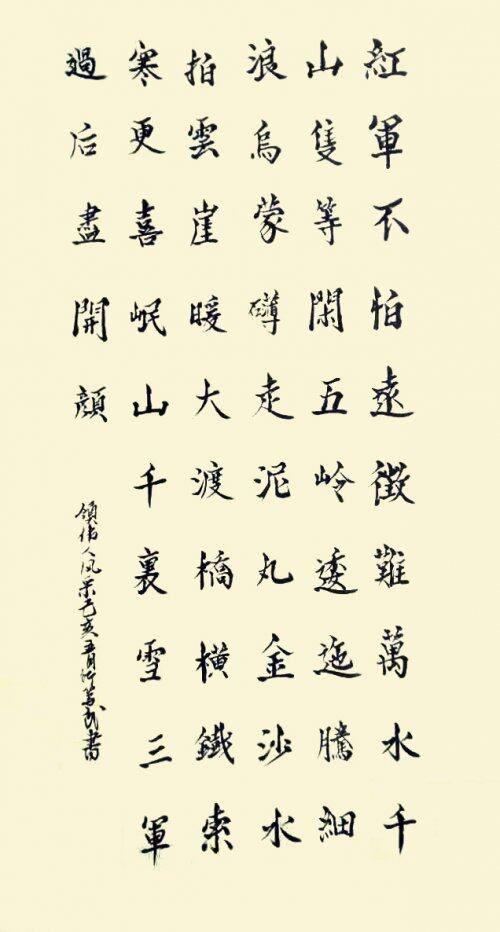 紅軍不怕遠徵難萬水千
山隻等閑五岭逶迤騰細
浪烏蒙礴走泥丸金沙水
拍雲崖暖大渡橋橫鐵索
寒更喜岷山千裏雪三軍
過后盡開顏
領偉人风采己亥月書